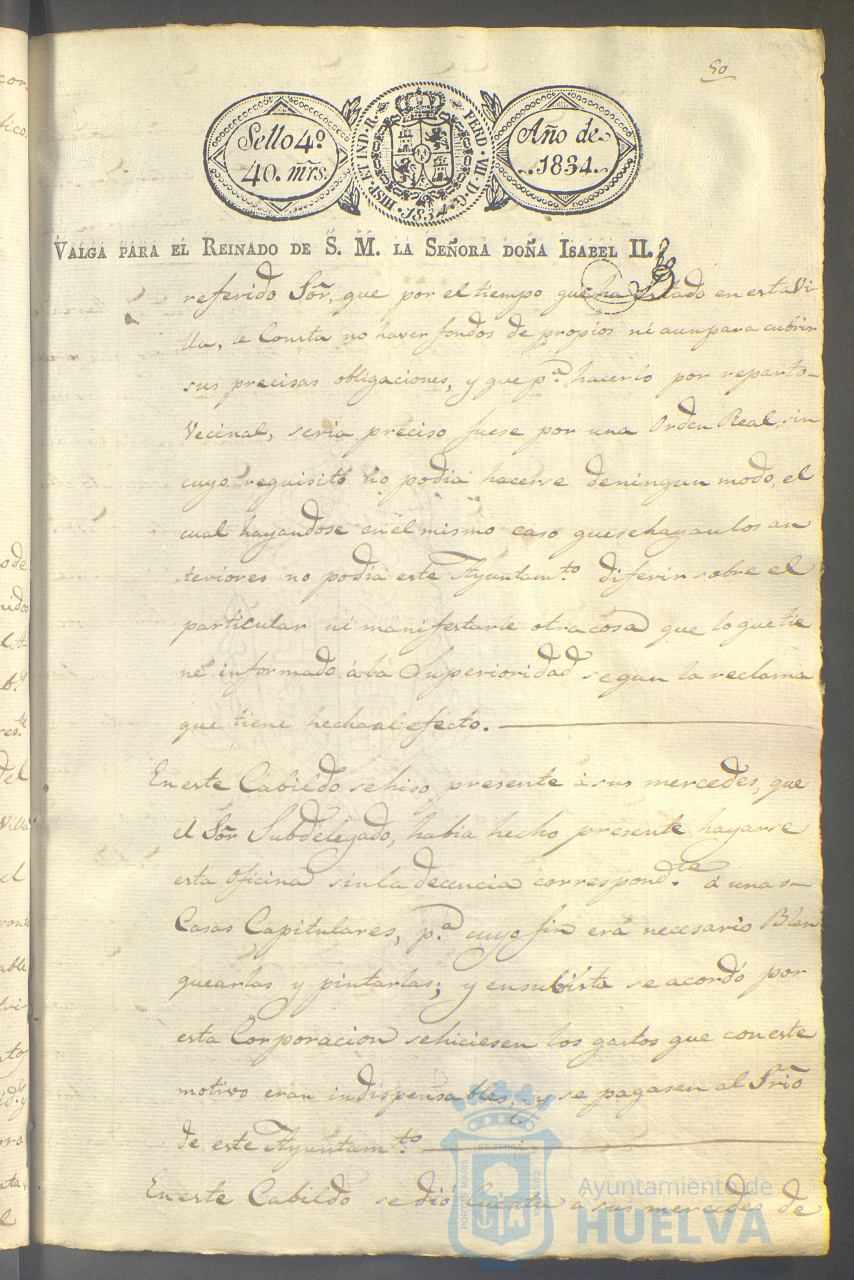 50
Sello 4º
40. mrs.
HISP. ET IND. R. FERD. VII. D. G.
1834
Año de
1834.
VALGA PARA EL REINADO DE S. M. LA SEÑORA DOÑA ISABEL II.
referido Sõr, que por el tiempo que ha estado en esta Vi
lla, le Consta no haver fondos de propios ni aun para cubrir
sus precisas obligaciones, y que pª. hacerlo por reparto
Vecinal, seria preciso fuese por una Orden Real, sin
cuyo requisito no podia hacerse deningun modo, el
cual hayandose en el mismo caso quesehayan los an
teriores no podia este Ayuntamto. diferir sobre el
particular ni manifestarle otra cosa que lo que tie
ne informado á la Superioridad segun la reclama
que tiene hecha al efecto.
En este Cabildo se hiso presente á sus mercedes, que
el Sõr Subdelegado, habia hecho presente hayarse
esta Oficina sin la decencia correspondte. á unas
Casas Capitulares, pª. cuyo fin erá necesario Blan
quearlas y pintarlas; y ensubista se acordó por
esta Corporacion sehiciesen los gastos que con este
motivo eran indispensables, y se pagasen al Srio
de este Ayuntamto.
En este Cabildo se dió Cuenta á sus mercedes de
Ayuntamiento de
HUELVA